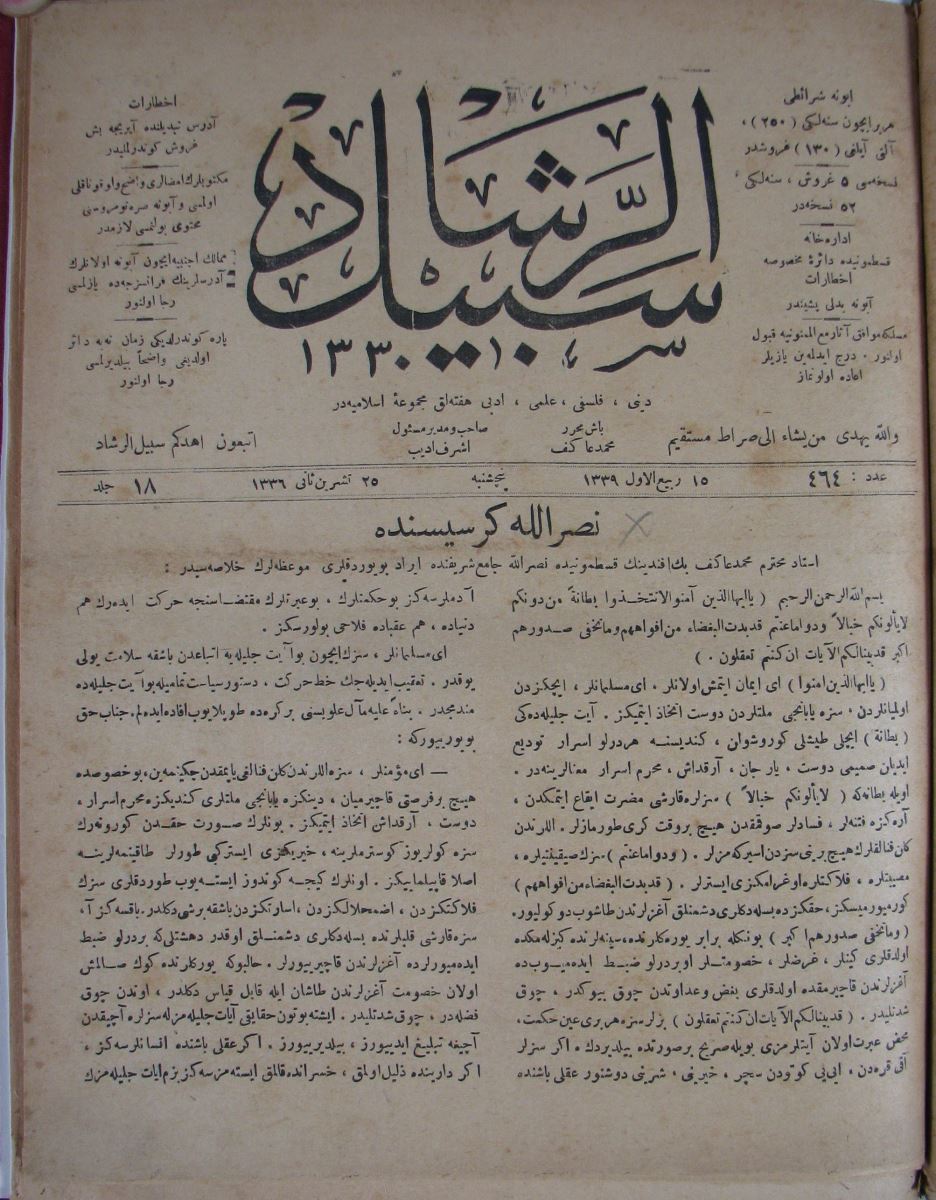 ابونه شرائطی
هر یر ایچون سنه‌لکی (۲۵۰)،
آلتی آیلغی (۱۳۰) غروشدر
نسخه‌سی ۵ غروش، سنه‌لکی
۵۲ نسخه‌در
اداره‌خانه
قسطمونیده دائرهٔ مخصوصه
اخطارات
آبونه بدلی پشیندر
مسلکه موافق آثار مع‌الممنونیه قبول
اولنور. درج ایدلمه‌ین یازیلر
اعاده اولونماز
سبیل الرشاد
سر ۱۳۳۰
اخطارات
آدرس تبدیلنده آیریجه بش
غروش کوندرلمیلدر
مکتوبلرك امضالری واضح واوقوناقلی
اولمسی وآبونه صره نومروسنی
محتوی بولنمسی لازمدر
ممالك اجنبیه ایچون آبونه اولانلرك
آدرسلرینك فرانسزجه‌ده یازلمسی
رجا اولنور
پاره کوندرلدیکی زمان نه‌یه دائر
اولدیغی واضحاً بیلدیرلمسی
رجا اولنور
دینی، فلسفی، علمی، ادبی هفته‌لق مجموعهٔ اسلامیه‌در
والله یهدی من یشاء الی صراط مستقیم
باش محرر
محمد عاکف
صاحب ومدیر مسئول
اشرف ادیب
اتبعون اهدکم سبیل الرشاد
عدد: ٤٦٤
۱۵ ربیع‌الاول ۱۳۳۹
پنجشنبه
۲۵ تشرین ثانی ۱۳۳۶
جلد ۱۸
نصرالله کرسیسنده
استاد محترم محمد عاکف بك افندینك قسطمونیده نصرالله جامع شریفنده ایراد بویوردقلری موعظه‌لرك خلاصه‌سیدر:
بسم الله الرحمن الرحیم (یاایها الذین آمنوا لاتتخذوا بطانة من دونکم
لایألونکم خبالاً ودوا ماعنتم قدبدت البغضاء من افواههم وماتخفی صدورهم
اکبر قدبینا لکم الآیات ان کنتم تعقلون.)
(یاایها الذین امنوا) ای ایمان ایتمش اولانلر، ای مسلمانلر، ایچکزدن
اولمیانلردن، سزه یابانجی ملتلردن دوست اتخاذ ایتمیکز. آیت جلیله‌ده‌کی
(بطانة) ایچلی طیشلی کوروشولن، کندیسنه هر درلو اسرار تودیع
ایدیلن صمیمی دوست، یار جان، آرقداش، محرم اسرار معنالرینه‌در.
اویله بطانه‌که (لایألونکم خبالاً) سزلره قارشی مضرت ایقاع ایتمکدن،
آره‌کزه فتنه‌لر، فسادلر صوقمقدن هیچ بروقت کری طورمازلر. اللرندن
کلن فنالقلرك هیچ برینی سزدن اسیرکه‌مزلر. (ودوا ماعنتم) سزك صیقینتیلره،
مصیبتلره، فلاکتلره اوغرامکزی ایسترلر. (قدبدت البغضاء من افواههم)
کورمیورمیسکز، حقکزده بسله‌دکلری دشمنلق آغزلرندن طاشوب دوکولیور.
(وماتخفی صدورهم اکبر) بونکله برابر یوره‌کلرنده، سینه‌لرنده کیزله‌مکده
اولدقلری کینلر، غرضلر، خصومتلر اوبردرلو ضبط ایده‌میوب‌ده
آغزلرندن قاچیرمقده اولدقلری بغض وعداوتدن چوق بیوکدر، چوق
شدتلیدر. (قدبینا لکم الآیات ان کنتم تعقلون) بزلر سزه هر بری عین حکمت،
محض عبرت اولان آیتلرمزی بویله صریح برصورتده بیلدیردك. اکر سزلر
آقی قره‌دن، ایی‌یی کوتودن سچر، خیرینی، شرینی دوشنور عقلی باشنده
آدملرسه‌کز بوحکمتلرك، بوعبرتلرك مقتضاسنجه حرکت ایده‌رك هم
دنیاده، هم عقباده فلاحی بولورسکز.
ای مسلمانلر، سزك ایچون بوآیت جلیله‌یه اتباعدن باشقه سلامت یولی
یوقدر. تعقیب ایدیله‌جك خط حرکت، دستور سیاست تمامیله بوآیت جلیله‌ده
مندمجدر. بناءً علیه مآل علویسنی برکره‌ده طوپلایوب افاده ایده‌لم. جناب حق
بویوریورکه:
— ای مؤمنلر، سزه اللرندن کلن فنالغی یاپمقدن چکینمه‌ین، بوخصوصده
هیچ برفرصتی قاچیرمیان، دینکزه یابانجی ملتلری کندیکزه محرم اسرار،
دوست، آرقداش اتخاذ ایتمیکز. بونلرك صورت حقدن کورونه‌رك
سزه کولریوز کوسترملرینه، خیریکزی ایسترکبی طورلر طاقینمه‌لرینه
اصلا قاپیلمایکز. اونلرك کیجه کوندوز ایسته‌یوب طوردقلری سزك
فلاکتکزدن، اضمحلالکزدن، اسارتکزدن باشقه برشی دکلدر. باقسه‌کز آ،
سزه قارشی قلبلرنده بسله‌دکلری دشمنلق اوقدر دهشتلی‌که بردرلو ضبط
ایده‌میورلرده آغزلرندن قاچیریورلر. حالبوکه یورکلرنده کوك صالمش
اولان خصومت آغزلرندن طاشان ایله قابل قیاس دکلدر، اوندن چوق
فضله‌در، چوق شدتلیدر. ایشته بوتون حقایقی آیات جلیله‌مزله سزلره آچیقدن
آچیغه تبلیغ ایدییورز، بیلدیرییورز. اکر عقلی باشنده انسانلرسه‌کز،
اکر دارینده ذلیل اولمق، خسرانده قالمق ایسته‌مزسه‌کز بزم ایات جلیله‌مزك